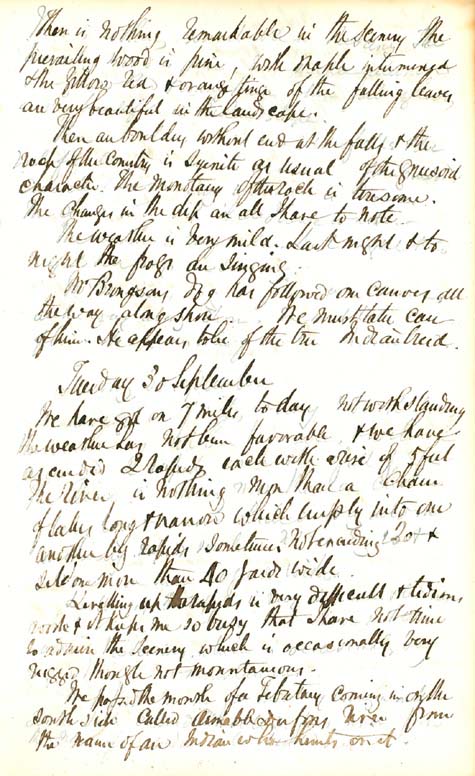 There is nothing remarkable in the scenery The
prevailing wood is pine, with maple intermixed
& the yellow red & orange tinge of the falling leaves
are very beautiful in the landscape.
There are boulders without end at the falls & the
rock of the Country is Syenite as usual of the gneissoid
character. The monotony of the rock is tiresome.
The changes in the dip are all I have to note.
The weather is very mild. Last night & to
night the frogs are singing.
Mr Brongsons dog has followed our canoes all
the way along shore. We must take care
of him. He appears to be of the true Indian breed.
Tuesday 30 September
We have got on 7 miles to day, notwithstanding
the weather has not been favorable, & we have
ascended 2 rapids each with a rise of 5 feet
The river is nothing more than a Chain
of lakes long & narrow which empty into one
another by rapids sometimes not exceeding 20 &
seldom more than 40 yards wide.
Levelling up the rapids is very difficult & tedious
work & it keeps me so busy that I have not time
to admire the scenery which is occasionally very
rugged though not mountainous.
We passed the mouth of a Tributary coming in on the
south side Called River from
the name of an Indian who hunts on it.